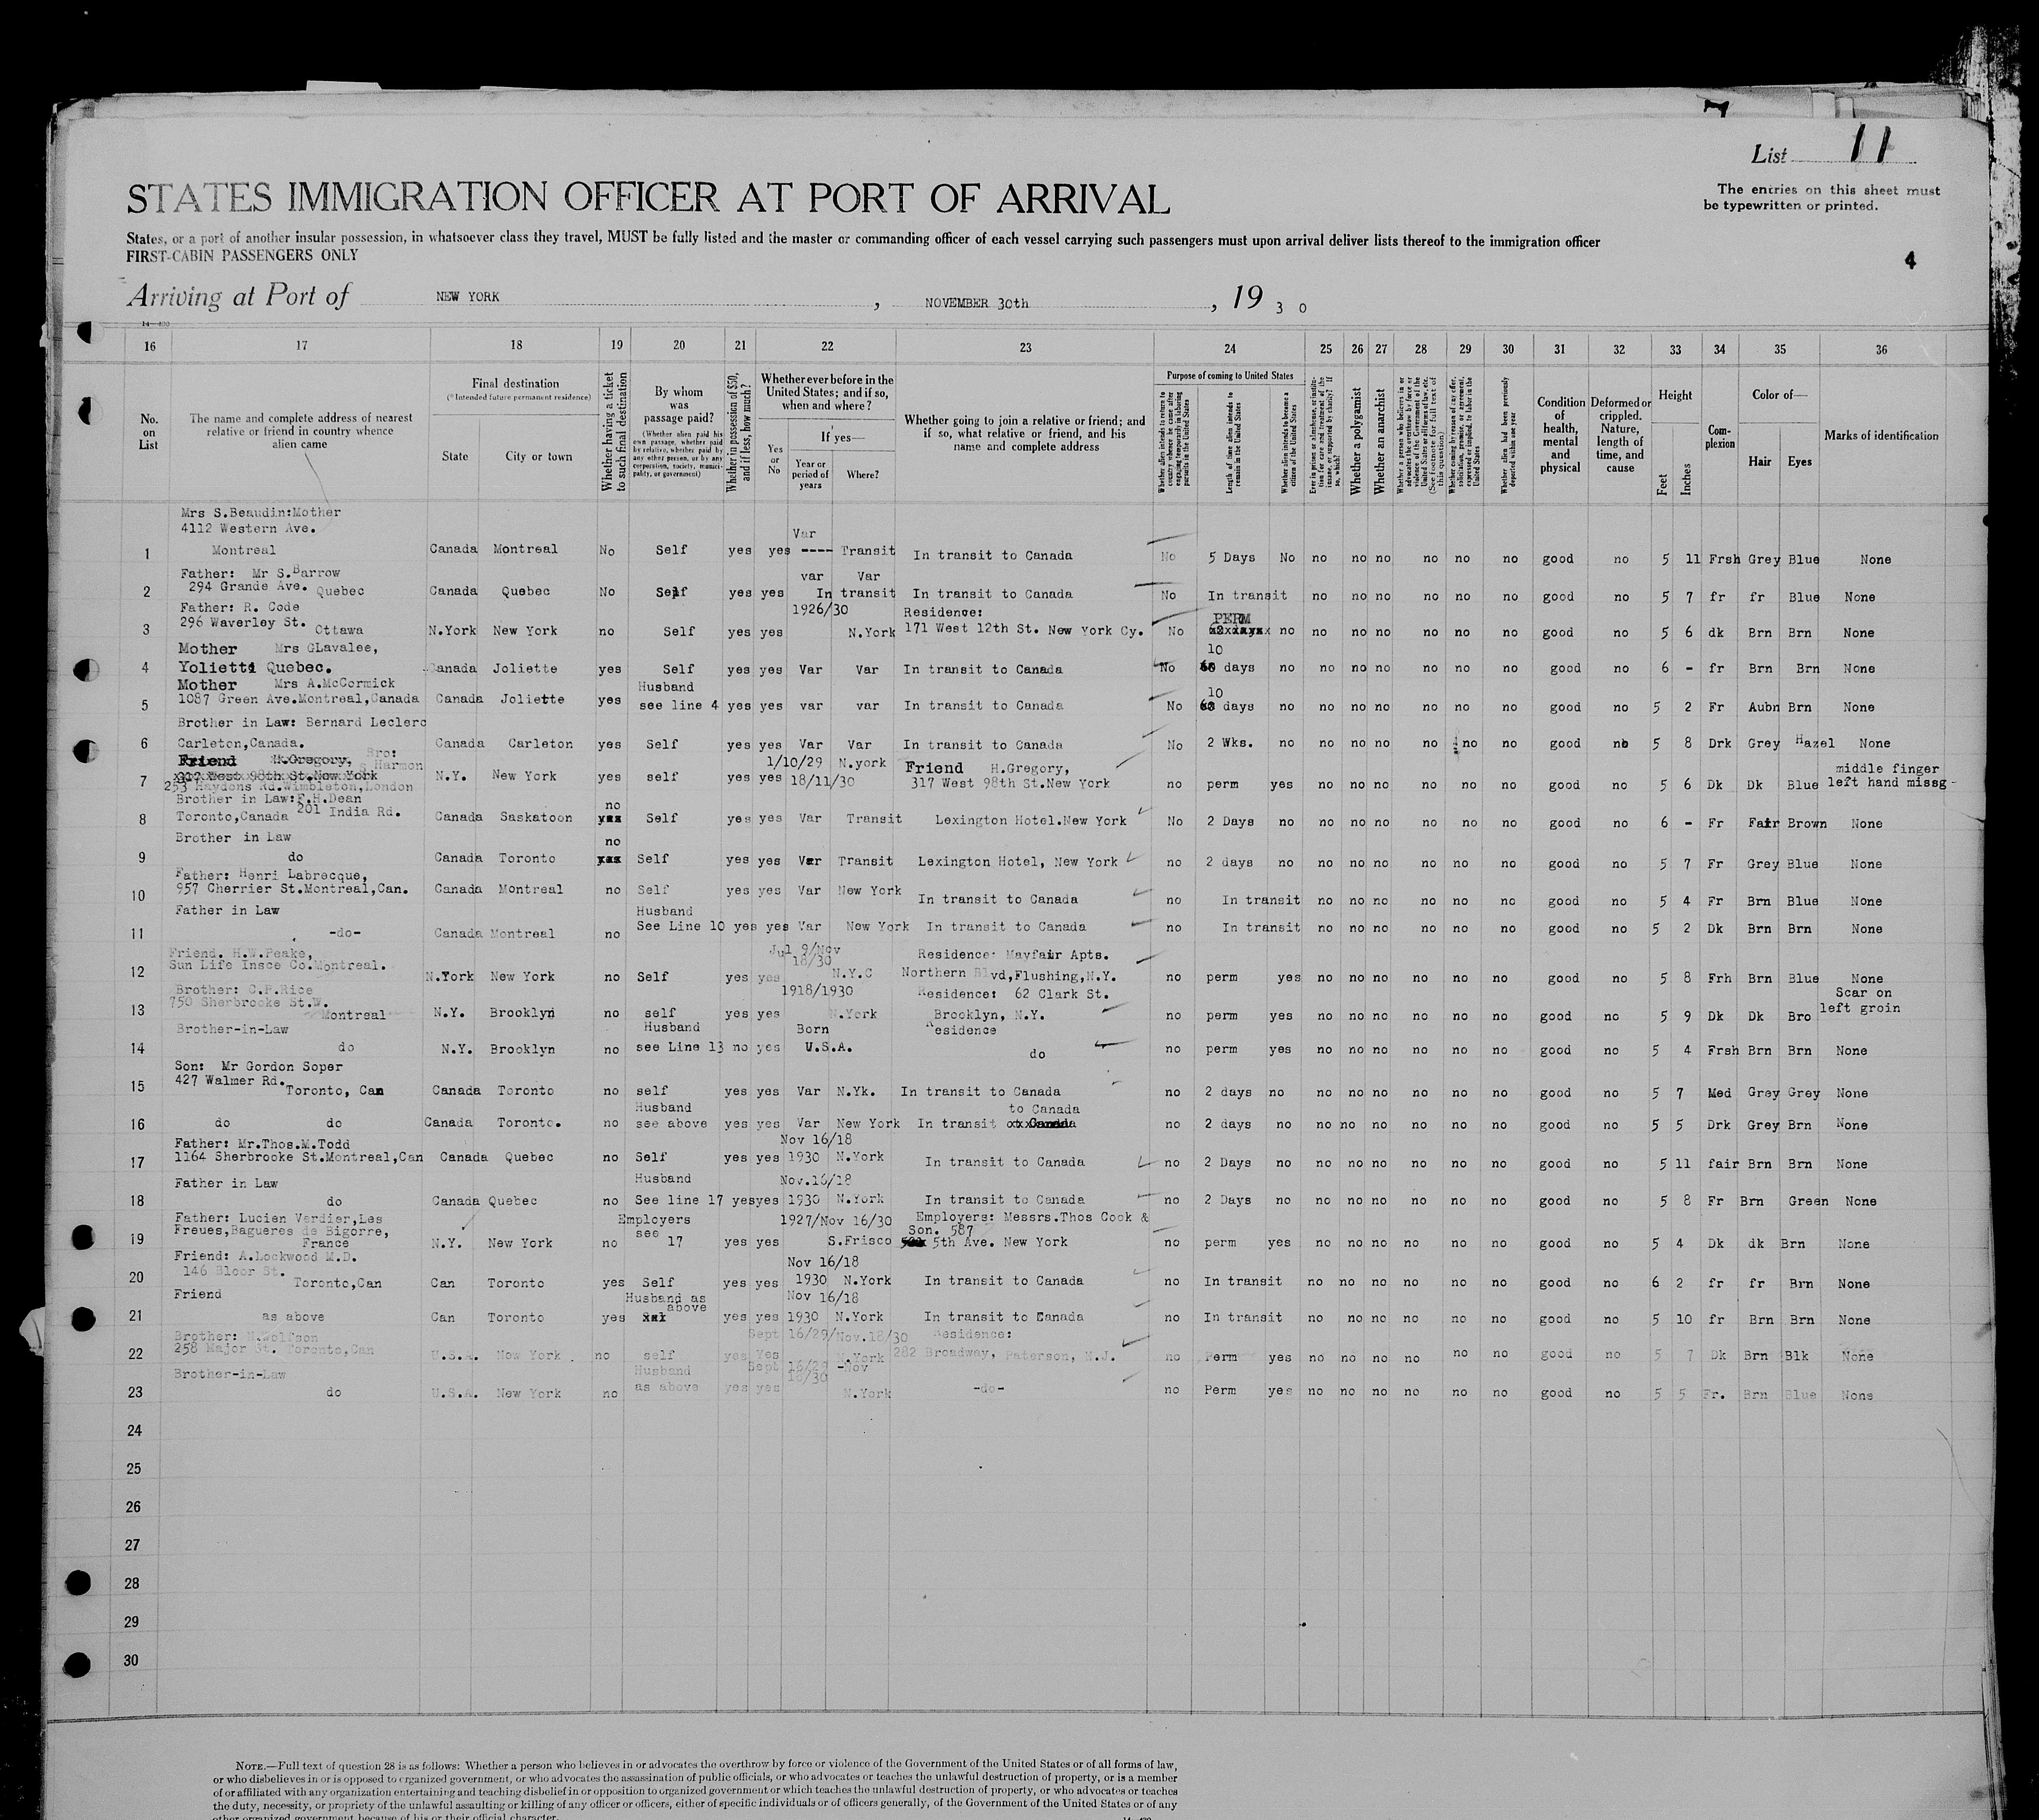 List 11
STATES IMMIGRATION OFFICER AT PORT OF ARRIVAL
The entries on this sheet must
be typewritten or printed.
States, or a port of another insular possession, in whatsoever class they travel, MUST be fully listed and the master or commanding officer of each vessel carrying such passengers must upon arrival deliver lists thereof to the immigration officer
FIRST-CABIN PASSENGERS ONLY
4
Arriving at Port of NEW YORK, NOVEMBER 30th, 19 3 0
16 17 18 19 20 21 22 23 24 25 26 27 28 29 30 31 32 33 34 35 36
No. on List
The name and complete address of nearest relative or friend in country whence alien came
Final destination
(* Intended future permanent residence)
State
City or town
Whether having a ticket to such final destination
By whom was passage paid?
(Whether alien paid his own passage, whether paid by relative, whether paid by any other person, or by any corporation, society, municipality, or government)
Whether in possession of $50, and if less, how much?
Whether ever before in the United States; and if so, when and where?
Yes or No
If yes—
Year or period of years
Where?
Whether going to join a relative or friend; and if so, what relative or friend, and his name and complete address
Purpose of coming to United States
Whether alien intends to return to country whence he came after engaging temporarily in laboring pursuits in the United States
Length of time alien intends to remain in the United States
Whether alien intends to become a citizen of the United States
Ever in prison or almshouse, or institution for care and treatment of the insane, or supported by charity? If so, which?
Whether a polygamist
Whether an anarchist
Whether a person who believes in or advocates the overthrow by force or violence of the Government of the United States or all forms of law, etc. (See footnote for full text of this question)
Whether coming by reason of any offer, solicitation, promise, or agreement, expressed or implied, to labor in the United States
Whether alien had been previously deported within one year
Condition of health, mental and physical
Deformed or crippled. Nature, length of time, and cause
Height
Feet
Inches
Complexion
Color of—
Hair
Eyes
Marks of identification
Mrs S.Beaudin:Mother
4112 Western Ave.
Var
1 Montreal Canada Montreal No Self yes yes ---- Transit In transit to Canada No 5 Days No no no no no no no good no 5 11 Frsh Grey Blue None
Father: Mr S.Barrow var Var
2 294 Grande Ave. Quebec Canada Quebec No Self yes yes In transit In transit to Canada No In transit no no no no no no good no 5 7 fr fr Blue None
Father: R. Code 1926/30 Residence:
3 296 Waverley St. Ottawa N.York New York no Self yes yes N.York 171 West 12th St. New York Cy. No PERM no no no no no no no good no 5 6 dk Brn Brn None
Mother Mrs GLavalee, 10
4 Yolietti Quebec. Canada Joliette yes Self yes yes Var Var In transit to Canada No days no no no no no no no good no 6 - fr Brn Brn None
Mother Mrs A.McCormick Husband 10
5 1087 Green Ave.Montreal,Canada Canada Joliette yes see line 4 yes yes var var In transit to Canada No days no no no no no no no good no 5 2 Fr Aubn Brn None
Brother in Law: Bernard Leclerc
6 Carleton,Canada. Canada Carleton yes Self yes yes Var Var In transit to Canada No 2 Wks. no no no no no no no good no 5 8 Drk Grey Hazel None
Friend H.Gregory, Bro: s Harmon 1/10/29 N.york Friend H.Gregory, middle finger
7 317 West 98th St.New York N.Y. New York yes self yes yes 18/11/30 317 West 98th St.New York no perm yes no no no no no no good no 5 6 Dk Dk Blue left hand missg-
253 Haydons Rd.Wimbleton,London
Brother in Law:F.H.Dean no
8 Toronto,Canada 201 India Rd. Canada Saskatoon xxx Self yes yes Var Transit Lexington Hotel.New York No 2 Days no no no no no no no good no 6 - Fr Fair Brown None
Brother in Law no
9 do Canada Toronto xxx Self yes yes Var Transit Lexington Hotel, New York no 2 days no no no no no no no good no 5 7 Fr Grey Blue None
Father: Henri Labrecque,
10 957 Cherrier St.Montreal,Can. Canada Montreal no Self yes yes Var New York In transit to Canada no In transit no no no no no no good no 5 4 Fr Brn Blue None
Father in Law Husband
11 -do- Canada Montreal no See Line 10 yes yes Var New York In transit to Canada no In transit no no no no no no good no 5 2 Dk Brn Brn None
Friend. H.W.Peake, Jul 9/Nov Residence: Mayfair Apts.
Sun Life Insce Co.Montreal. 18/30
12 N.York New York no Self yes yes N.Y.C Northern Blvd,Flushing,N.Y. no perm yes no no no no no no good no 5 8 Frh Brn Blue None
Brother: C.P.Rice 1918/1930 Residence: 62 Clark St. Scar on
750 Sherbrooke St.W.
13 Montreal N.Y. Brooklyn no self yes yes N.York Brooklyn, N.Y. no perm yes no no no no no no good no 5 9 Dk Dk Bro left groin
Brother-in-Law Husband Born Residence
14 do N.Y. Brooklyn no see Line 13 no yes U.S.A. do no perm yes no no no no no no good no 5 4 Frsh Brn Brn None
Son: Mr Gordon Soper
427 Walmer Rd.
15 Toronto, Can Canada Toronto no self yes yes Var N.Yk. In transit to Canada no 2 days no no no no no no no good no 5 7 Med Grey Grey None
Husband to Canada
16 do do Canada Toronto. no see above yes yes Var New York In transit no 2 days no no no no no no no good no 5 5 Drk Grey Brn None
Father: Mr.Thos.M.Todd Nov 16/18
17 1164 Sherbrooke St.Montreal,Can Canada Quebec no Self yes yes 1930 N.York In transit to Canada no 2 Days no no no no no no no good no 5 11 fair Brn Brn None
Father in Law Husband Nov.16/18
18 do Canada Quebec no See line 17 yes yes 1930 N.York In transit to Canada no 2 Days no no no no no no no good no 5 8 Fr Brn Green None
Father: Lucien Verdier,Les Employers 1927/Nov 16/30 Employers: Messrs.Thos Cook &
Freues,Bagueres de Bigorre, see Son. 587
19 France N.Y. New York no 17 yes yes S.Frisco 5th Ave. New York no perm yes no no no no no no good no 5 4 Dk dk Brn None
Friend: A.Lockwood M.D. Nov 16/18
146 Bloor St.
20 Toronto,Can Can Toronto yes Self yes yes 1930 N.York In transit to Canada no In transit no no no no no no good no 6 2 fr fr Brn None
Friend Husband as above Nov 16/18
21 as above Can Toronto yes yes yes 1930 N.York In transit to Canada no In transit no no no no no no good no 5 10 fr Brn Brn None
Brother: N.Wolfson Sept 16/29/Nov.18/30 Residence:
22 258 Major St. Toronto,Can U.S.A. New York. no self yes Yes N.York 282 Broadway, Paterson, N.J. no Perm yes no no no no no no good no 5 7 Dk Brn Blk None
Brother-in-Law Husband Sept 16/29 -Nov 18/30
23 do U.S.A. New York no as above yes yes N.York -do- no Perm yes no no no no no no good no 5 5 Fr. Brn Blue None
24
25
26
27
28
29
30
NOTE.—Full text of question 28 is as follows: Whether a person who believes in or advocates the overthrow by force or violence of the Government of the United States or of all forms of law,
or who disbelieves in or is opposed to organized government, or who advocates the assassination of public officials, or who advocates or teaches the unlawful destruction of property, or is a member
of or affiliated with any organization entertaining and teaching disbelief in or opposition to organized government or which teaches the unlawful destruction of property, or who advocates or teaches
the duty, necessity, or propriety of the unlawful assaulting or killing of any officer or officers, either of specific individuals or of officers generally, of the Government of the United States or of any
other organized government because of his or their official character.